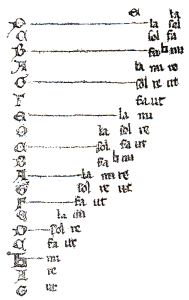 E la
D la sol
C sol fa
B fa b mi
A la mi re
G sol re ut
F fa ut
E la mi
D la sol re
C sol fa ut
B fa b mi
A la mi re
G sol re ut
F fa ut
E la mi
D sol re
C fa ut
♮ mi
A re
G ut